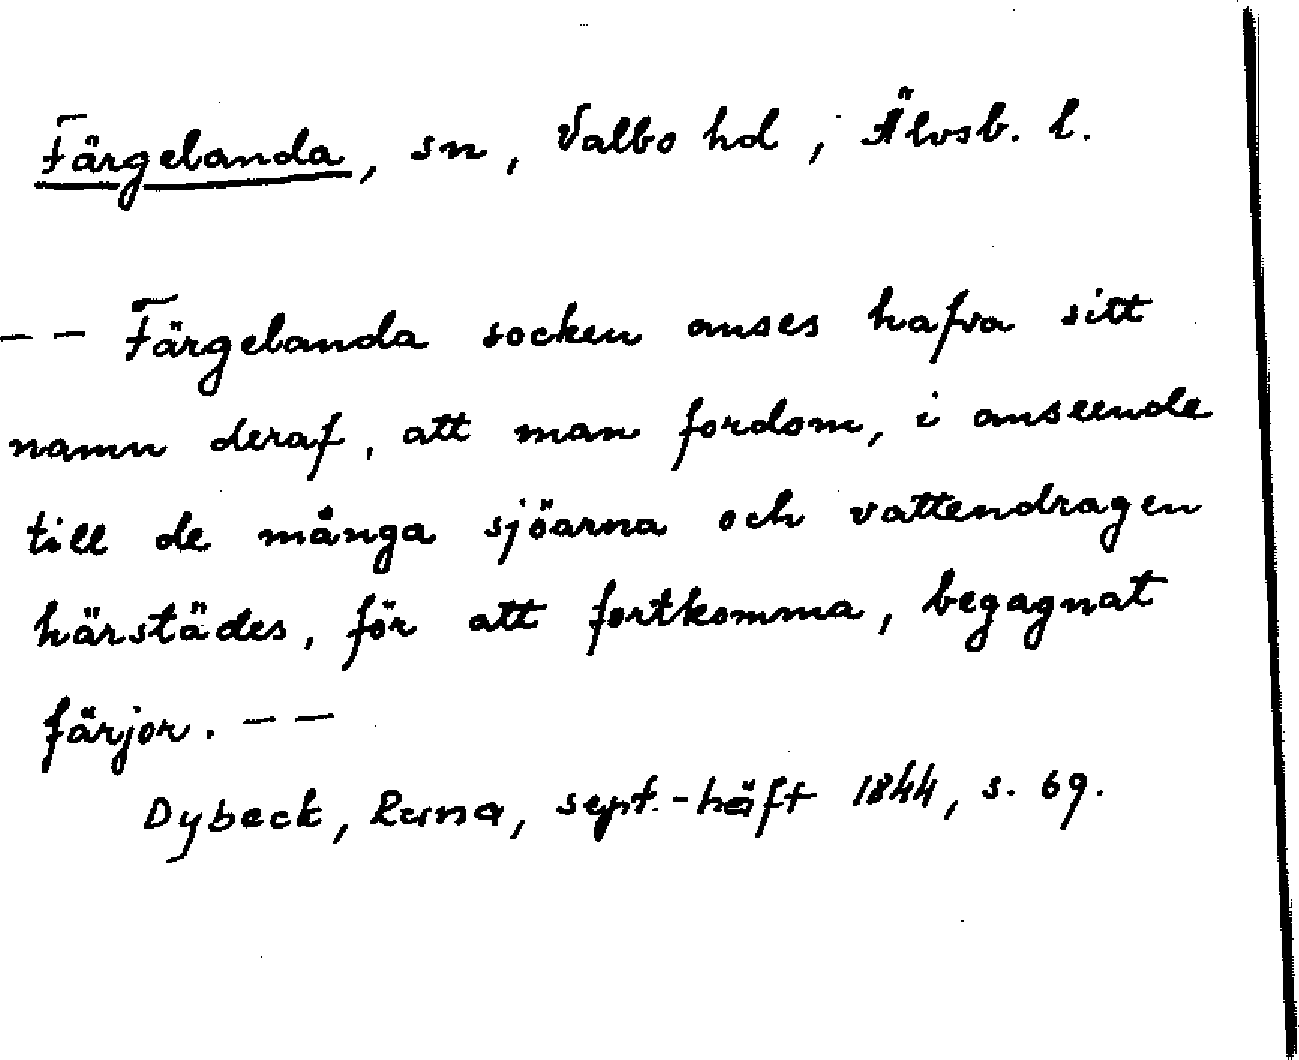 Färgelanda, sn, Valbo hd, Älvsb. l.
-- Färgelanda socken anses hafva sitt
namn deraf, att man fordom, i anseende
till de många sjöarna och vattendragen
härstädes, för att fortkomma, begagnat
färjor. --
Dybeck, Runa, sept.-häft 1844, s. 69.